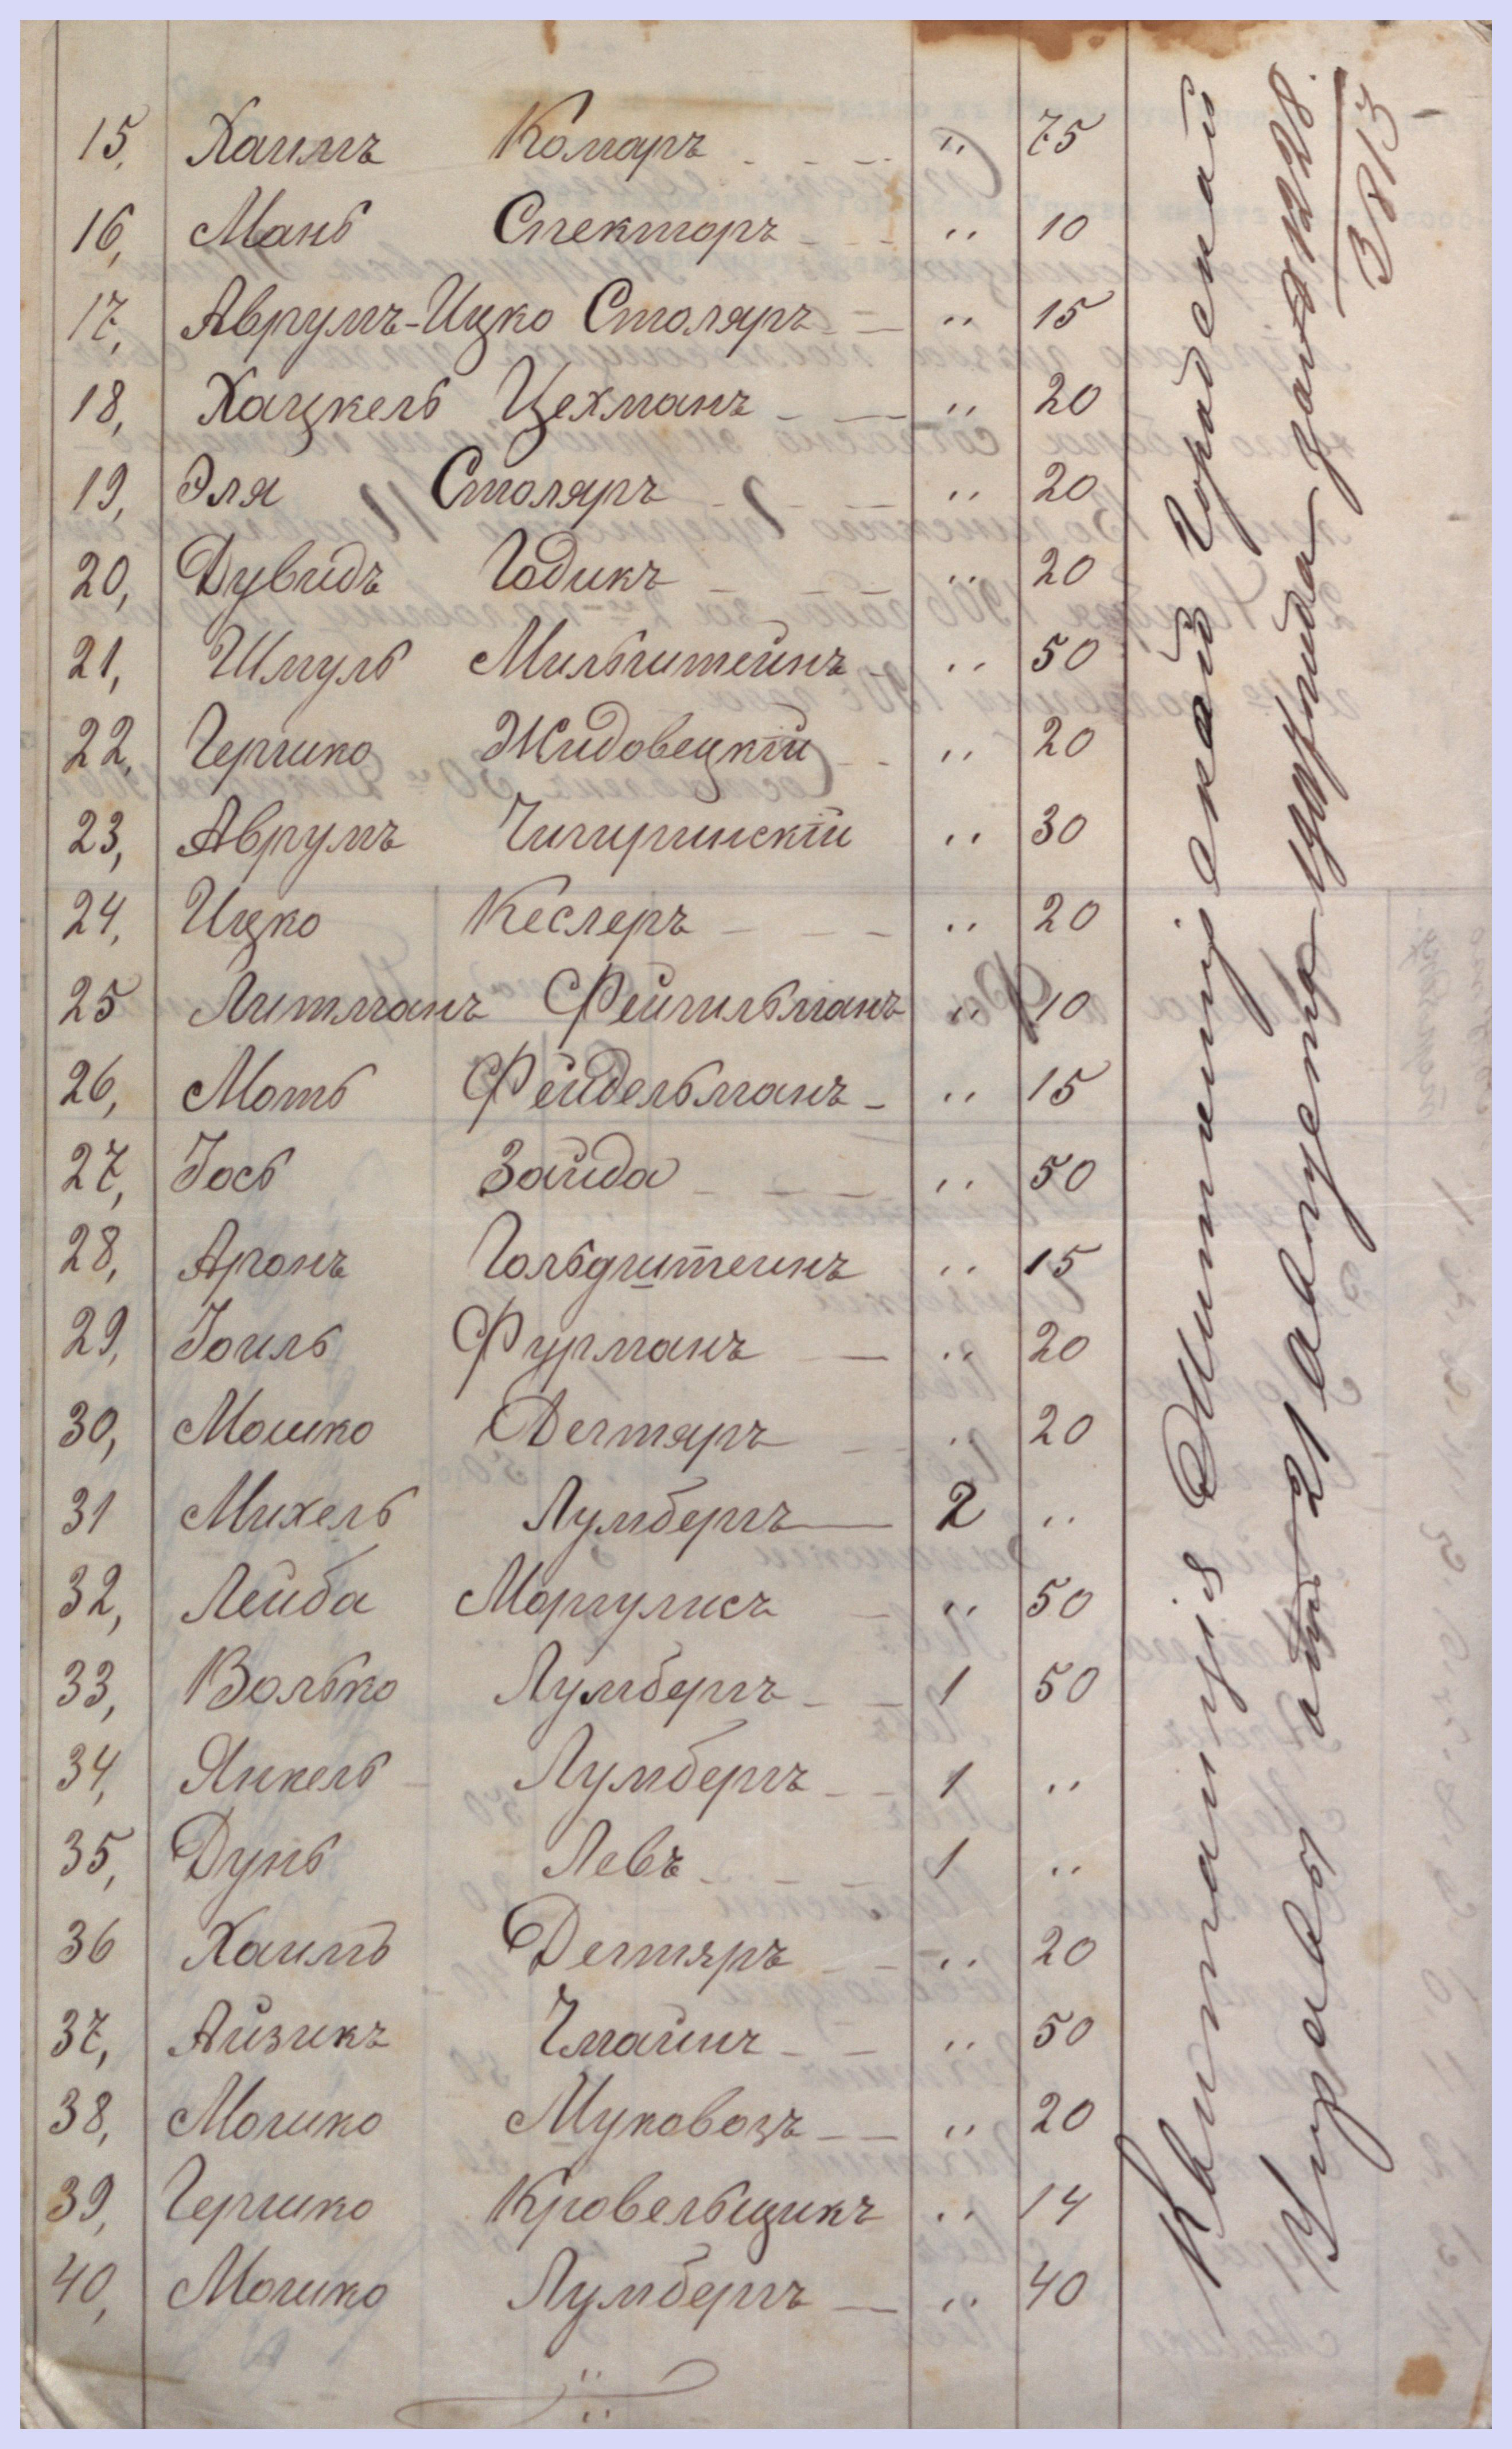 15, Хаимъ Комаръ " 75
16, Мань Спекторъ " 10
17, Аврумъ-Ицко Столяръ " 15
18, Хацкель Цехманъ " 20
19, Эля Столяръ " 20
20, Дувидъ Годикъ " 20
21, Шмуль Мильштейнъ " 50
22, Гершко Жидовецкій " 20
23, Аврумъ Чигиринскій " 30
24, Ицко Кеслеръ " 20
25 Литманъ Фейгильманъ " 10
26, Моть Фейдельманъ " 15
27, Іось Зайда " 50
28, Аронъ Гольдштейнъ " 15
29, Іоиль Фурманъ " 20
30, Мошко Дегтяръ " 20
31 Михель Лумбергъ 2 "
32, Лейба Моргулисъ " 50
33, Волько Лумбергъ 1 50
34, Янкель Лумбергъ 1 "
35, Дунь Левъ 1 "
36 Хаимъ Дегтяръ " 20
37, Айзикъ Чмаинъ " 50
38, Мошко Муковозъ " 20
39, Гершко Кровельщикъ " 14
40, Мошко Лумбергъ " 40
Квитанція Житомирской Городской
Управы отъ 21 августа за № 1228.
3813